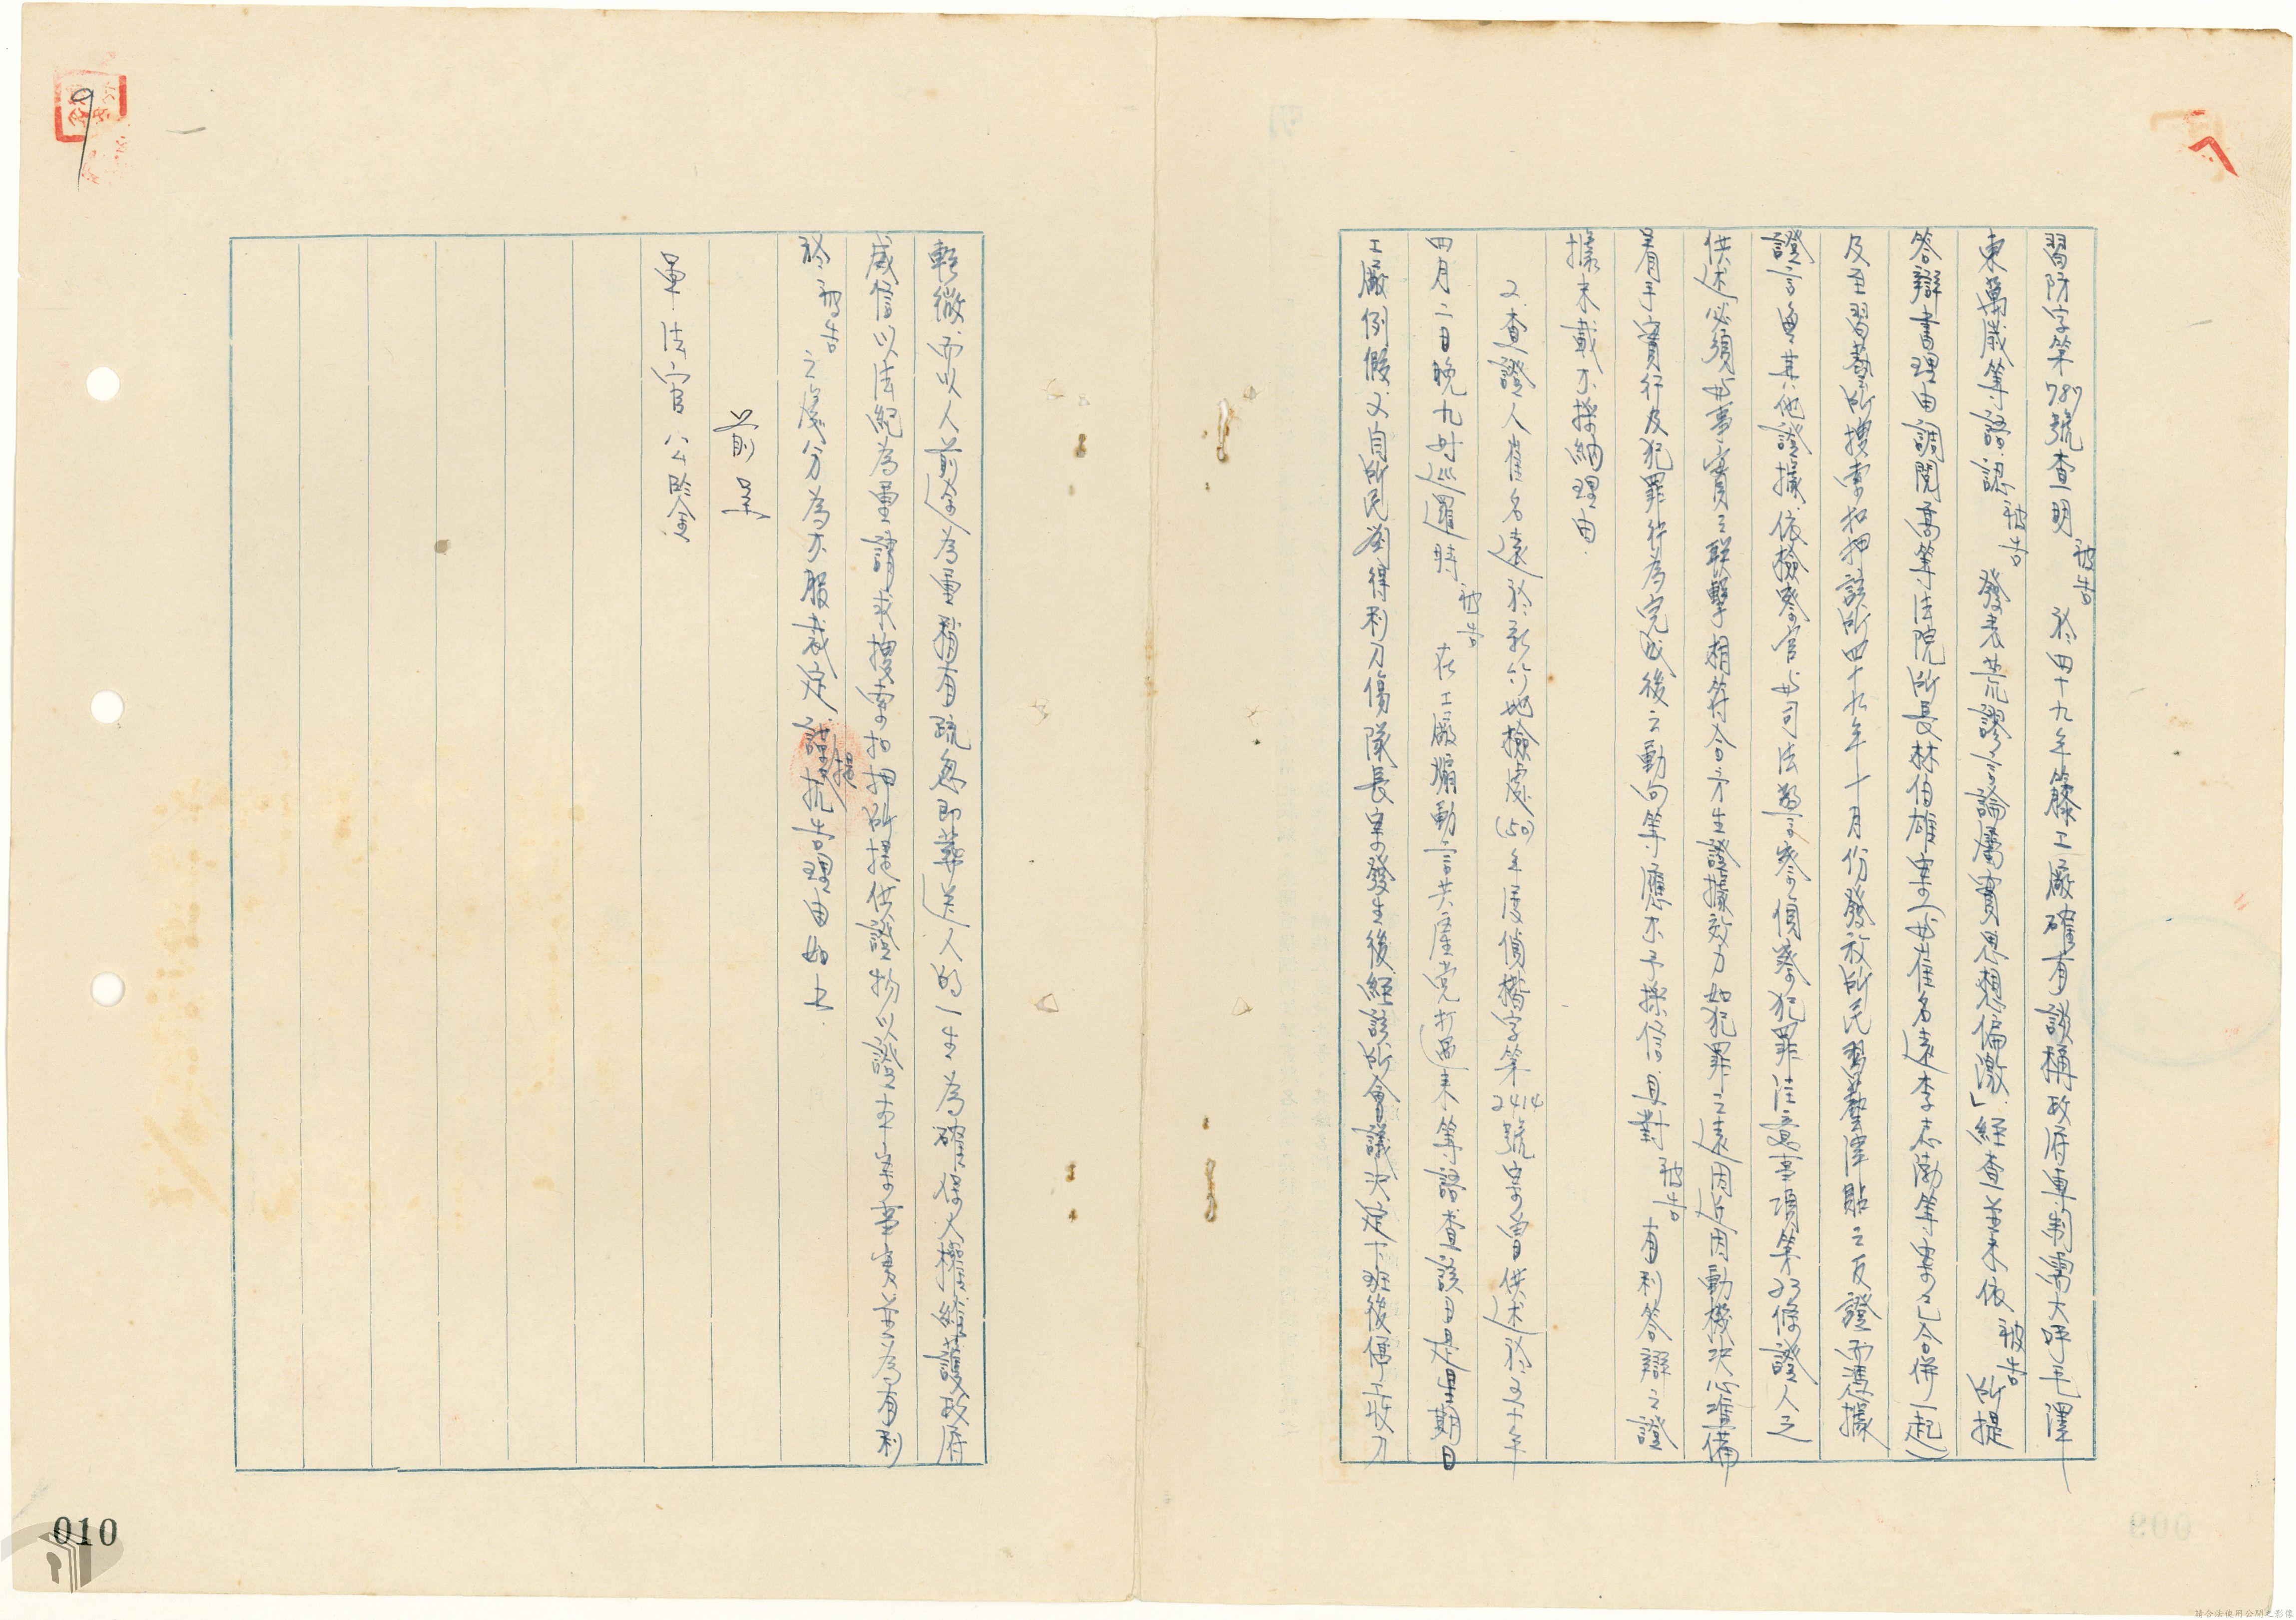 習防字第789號查明被告於四十九年籐工廠確有誹謗政府專制需大呼毛澤
東萬歲等語認被告發表荒謬言論屬實思想偏激」經查並未依被告所提
答辯書理由調閱高等法院所長林伯雄案(與崔名遠李志渤等案已合併一起)
及至習藝所搜索扣押該所四十九年十月份發放所民習藝津貼之反證而憑據
證言無其他證據依檢察官與司法警察偵察犯罪注意事項第23條證人之
供述必須與事實之聯繫相符合方生證據效力如犯罪之遠因近因動機決心準備
着手實行及犯罪行為完成後之動向等應不予採信且對被告有利答辯之證
據未載不採納理由
又查證人崔名遠於新竹地檢處(50)年度偵橋字第2414號案曾供述於五十年
四月二日晚九時近罷時被告在工廠煽動言共產党打過來等語查該日是星期日
工廠例假又自所民劉得利刀傷隊長案發生後經該所會議決定下班後便收刀
輕微而以人前途為重稍有疏忽即葬送人的一生為確保人權維護政府
威信以法紀為重請求搜索扣押所提供證物以證本案事實並為有利
於被告之處分為不服裁定謹提抗告理由如上
前呈
軍法官 公鑒
9
010
請合法使用公開之影像